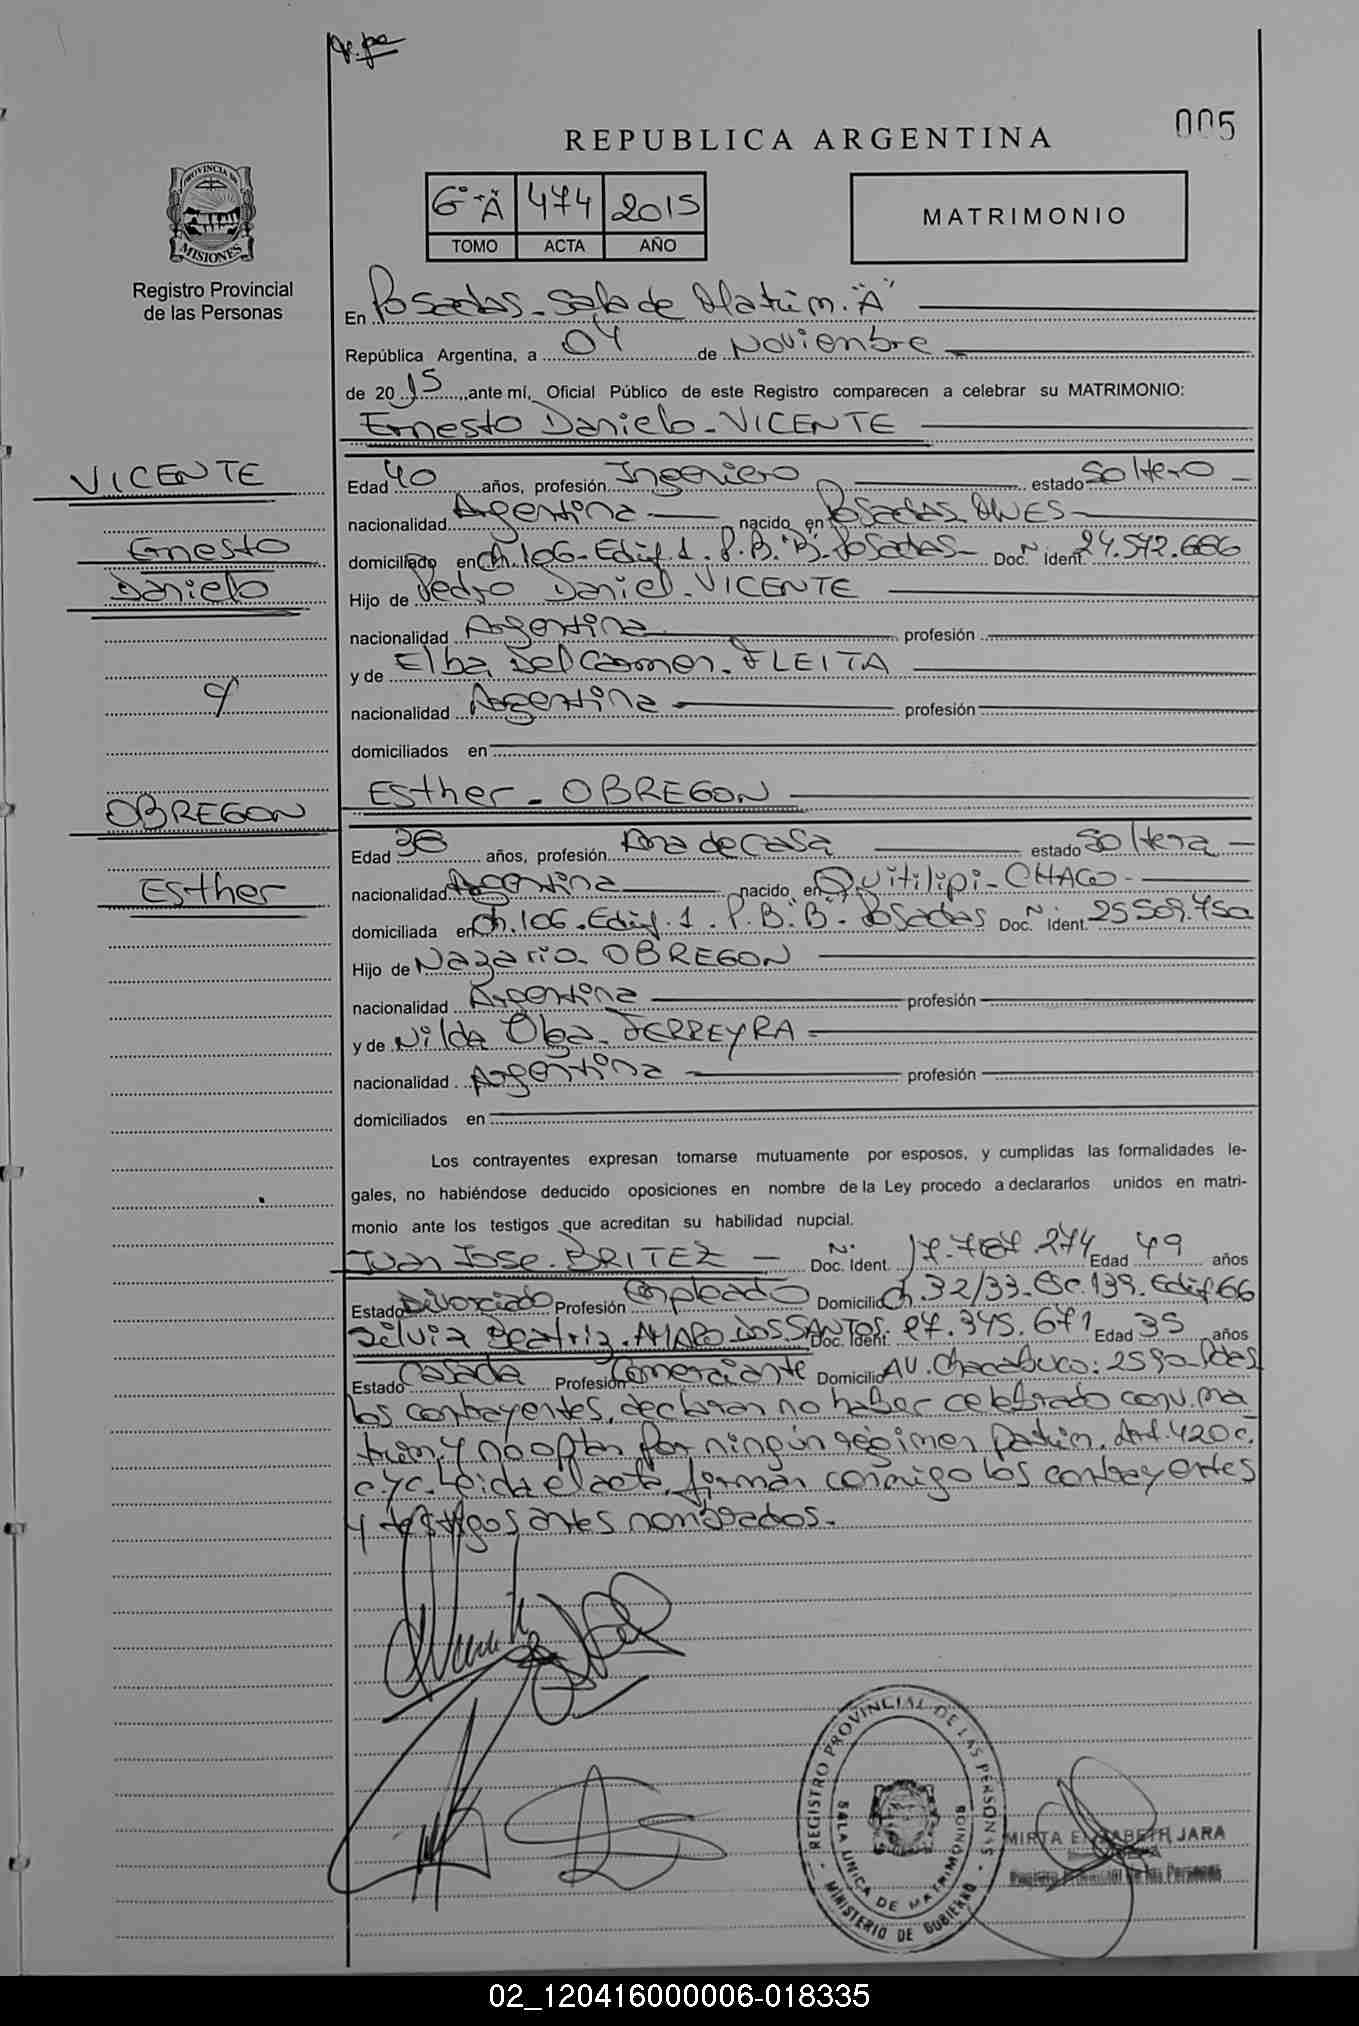 005
REPUBLICA ARGENTINA
PROVINCIA DE
MISIONES
Registro Provincial
de las Personas
6°"A" 474 2015
TOMO ACTA AÑO
MATRIMONIO
En Posadas - Sala de Matrim. "A"
República Argentina, a 04 de Noviembre
de 2015, ante mí, Oficial Público de este Registro comparecen a celebrar su MATRIMONIO:
Ernesto Danielo - VICENTE
VICENTE
Ernesto
Danielo
Edad 40 años, profesión Ingeniero estado Soltero
nacionalidad Argentina nacido en Posadas MNES
domiciliado en Ch. 106 - Edif. 1 . P.B. "B". Posadas - Doc. N° Ident. 24.572.686
Hijo de Pedro Daniel - VICENTE
nacionalidad Argentina profesión
y de Elba Del Carmen - FLEITA
nacionalidad Argentina profesión
domiciliados en
OBREGON
Esther
Esther - OBREGON
Edad 38 años, profesión Ama de Casa estado Soltera
nacionalidad Argentina nacido en Quitilipi - CHACO -
domiciliada en Ch. 106 - Edif. 1 . P.B. "B" - Posadas Doc. N° Ident. 25.509.750
Hijo de Nazario - OBREGON
nacionalidad Argentina profesión
y de Nilda Olga - FERREYRA
nacionalidad Argentina profesión
domiciliados en
Los contrayentes expresan tomarse mutuamente por esposos, y cumplidas las formalidades le-
gales, no habiéndose deducido oposiciones en nombre de la Ley procedo a declararlos unidos en matri-
monio ante los testigos que acreditan su habilidad nupcial.
Juan Jose - BRITEZ - Doc. N° Ident. 17.787.274 Edad 49 años
Estado Divorciado Profesión Empleado Domicilio Ch. 32/33 - Esc. 139 - Edif 66
Silvia Beatriz - AMARO DOS SANTOS Doc. Ident. 27.345.671 Edad 35 años
Estado Casada Profesión Comerciante Domicilio AV. Chacabuco: 2590 - Pdas
los contrayentes, declaran no haber celebrado conv. ma
trim. y no optan por ningún regimen patrim. Art. 420 c.
c. y c. Leida el acta, firman conmigo los contrayentes
y testigos antes nombrados.
REGISTRO PROVINCIAL DE LAS PERSONAS
SALA UNICA DE MATRIMONIOS
MINISTERIO DE GOBIERNO
MIRTA ELIZABETH JARA
Registro Provincial de las Personas
02_120416000006-018335